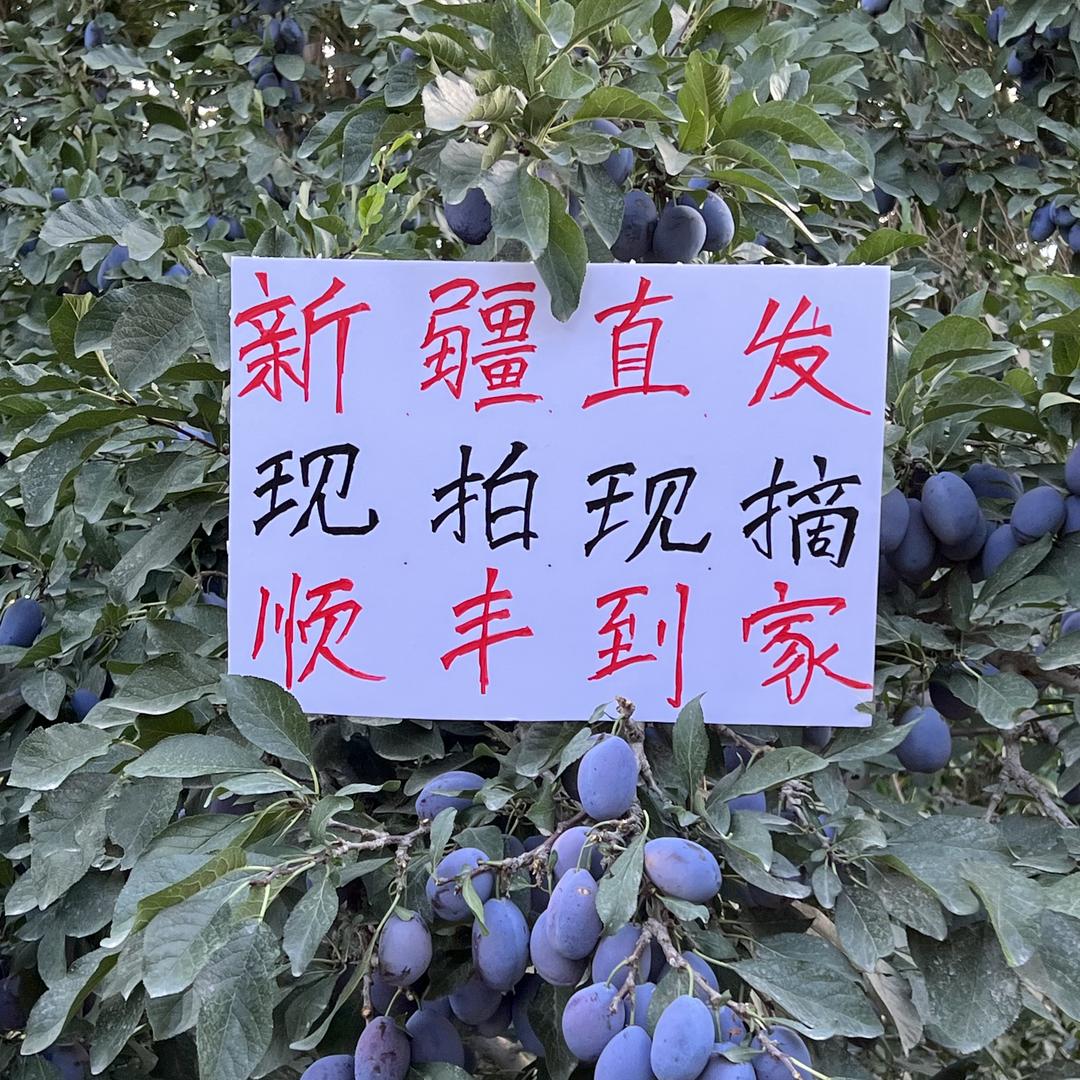 新疆直发
现拍现摘
顺丰到家